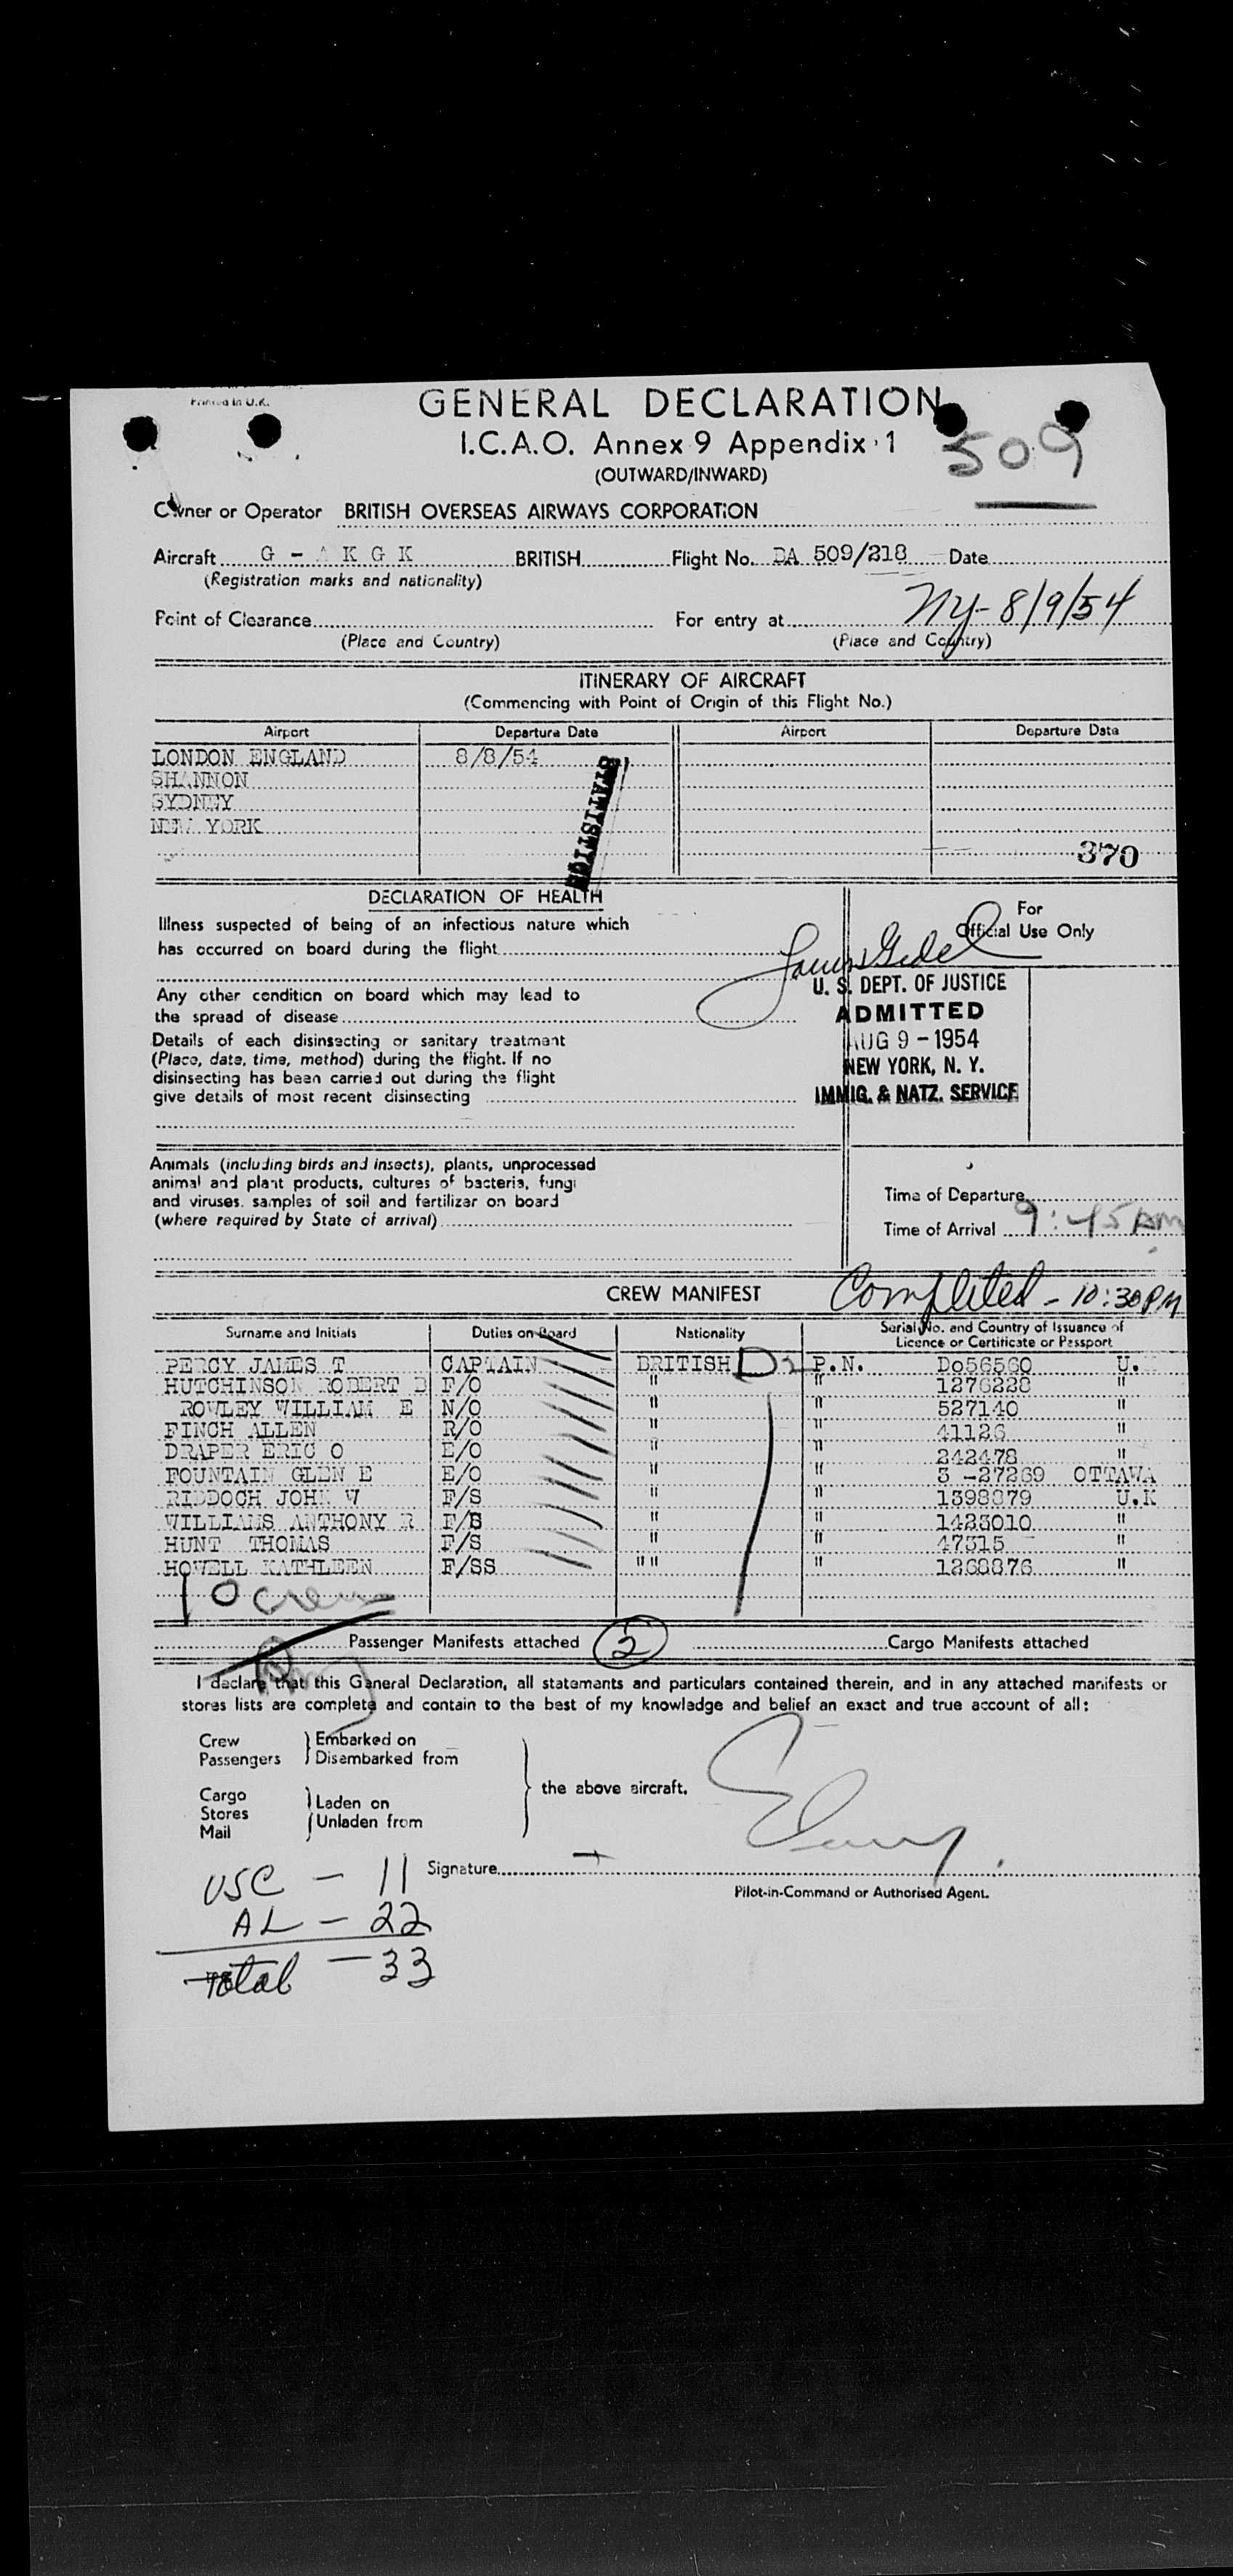 Printed in U.K.
GENERAL DECLARATION
I.C.A.O. Annex 9 Appendix 1
509
(OUTWARD/INWARD)
Owner or Operator BRITISH OVERSEAS AIRWAYS CORPORATION
Aircraft G - A K G K BRITISH Flight No. BA 509/218 Date
(Registration marks and nationality)
NY- 8/9/54
Point of Clearance For entry at
(Place and Country) (Place and Country)
ITINERARY OF AIRCRAFT
(Commencing with Point of Origin of this Flight No.)
Airport Departure Date Airport Departure Date
LONDON ENGLAND 8/8/54
SHANNON
SYDNEY
NEW YORK
STATISTICS
370
DECLARATION OF HEALTH
For
Official Use Only
Illness suspected of being of an infectious nature which
has occurred on board during the flight
Any other condition on board which may lead to
the spread of disease
U. S. DEPT. OF JUSTICE
ADMITTED
AUG 9 - 1954
NEW YORK, N. Y.
IMMIG. & NATZ. SERVICE
Details of each disinsecting or sanitary treatment
(Place, date, time, method) during the flight. If no
disinsecting has been carried out during the flight
give details of most recent disinsecting
Animals (including birds and insects), plants, unprocessed
animal and plant products, cultures of bacteria, fungi
and viruses, samples of soil and fertilizer on board
(where required by State of arrival)
Time of Departure
Time of Arrival 9:45 PM
CREW MANIFEST Completed - 10:30 PM
Surname and Initials Duties on Board Nationality Serial No. and Country of Issuance of
Licence or Certificate or Passport
PERCY JAMES T CAPTAIN BRITISH D2 P.N. Do56560 U.
HUTCHINSON ROBERT D F/O " " 1276228 "
ROWLEY WILLIAM E N/O " " 527140 "
FINCH ALLEN R/O " " 41126 "
DRAPER ERIC O E/O " " 242478 "
FOUNTAIN GLEN E E/O " " 3 -27269 OTTAWA
RIDDOCH JOHN W F/S " " 1398879 U.K
WILLIAMS ANTHONY R F/S " " 1423010 "
HUNT THOMAS F/S " " 47315 "
HOWELL KATHLEEN F/SS " " " 1268876 "
10 crew
Passenger Manifests attached 2 Cargo Manifests attached
I declare that this General Declaration, all statements and particulars contained therein, and in any attached manifests or
stores lists are complete and contain to the best of my knowledge and belief an exact and true account of all:
Crew Embarked on
Passengers Disembarked from
the above aircraft.
Cargo Laden on
Stores
Mail Unladen from
Signature
Pilot-in-Command or Authorised Agent.
USC - 11
AL - 22
Total - 33